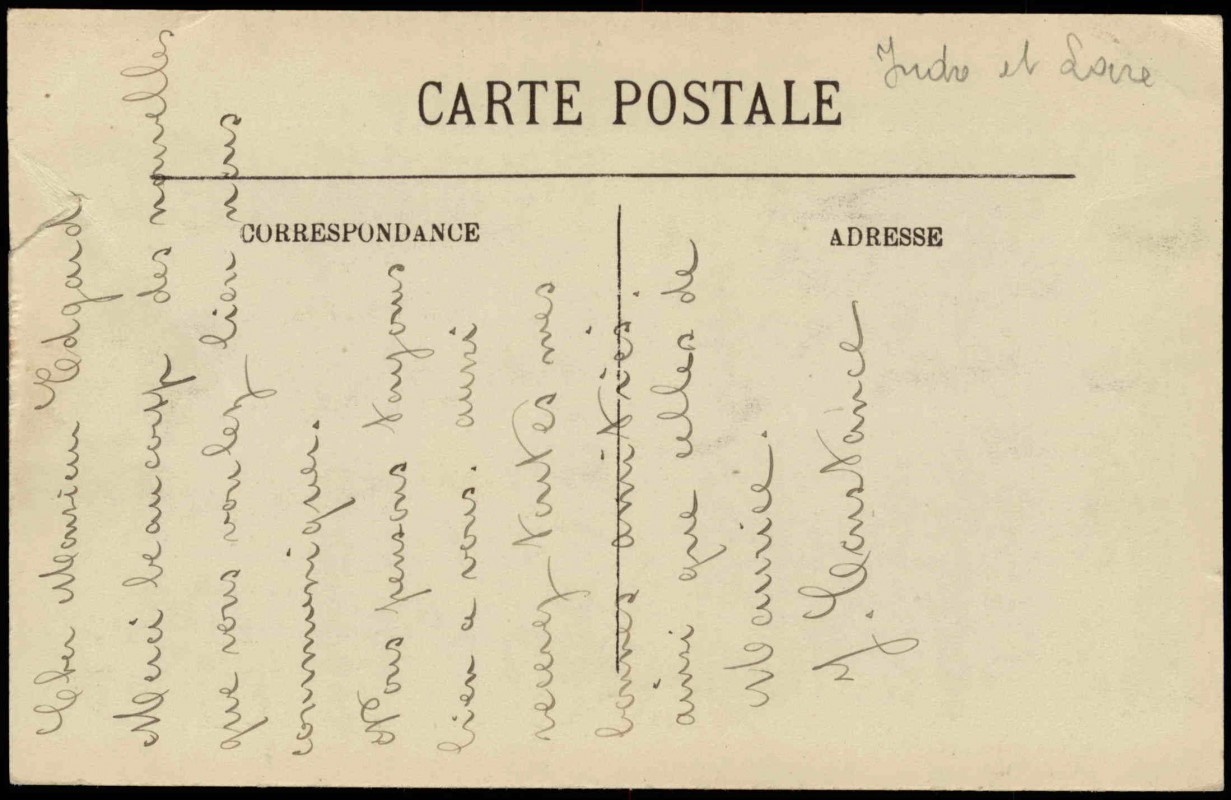 CARTE POSTALE
Indre et Loire
CORRESPONDANCE
ADRESSE
Cher Monsieur Edgard,
Merci beaucoup des nouvelles
que vous voulez bien nous
communiquer.
Nous pensons toujours
bien a vous. aussi
recevez toutes mes
bonnes amitiés.
ainsi que celles de
Maurice.
J. Constance